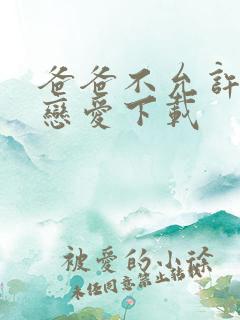 爸爸不允許
戀愛下載
被愛的小徐
未任同意禁止轉載